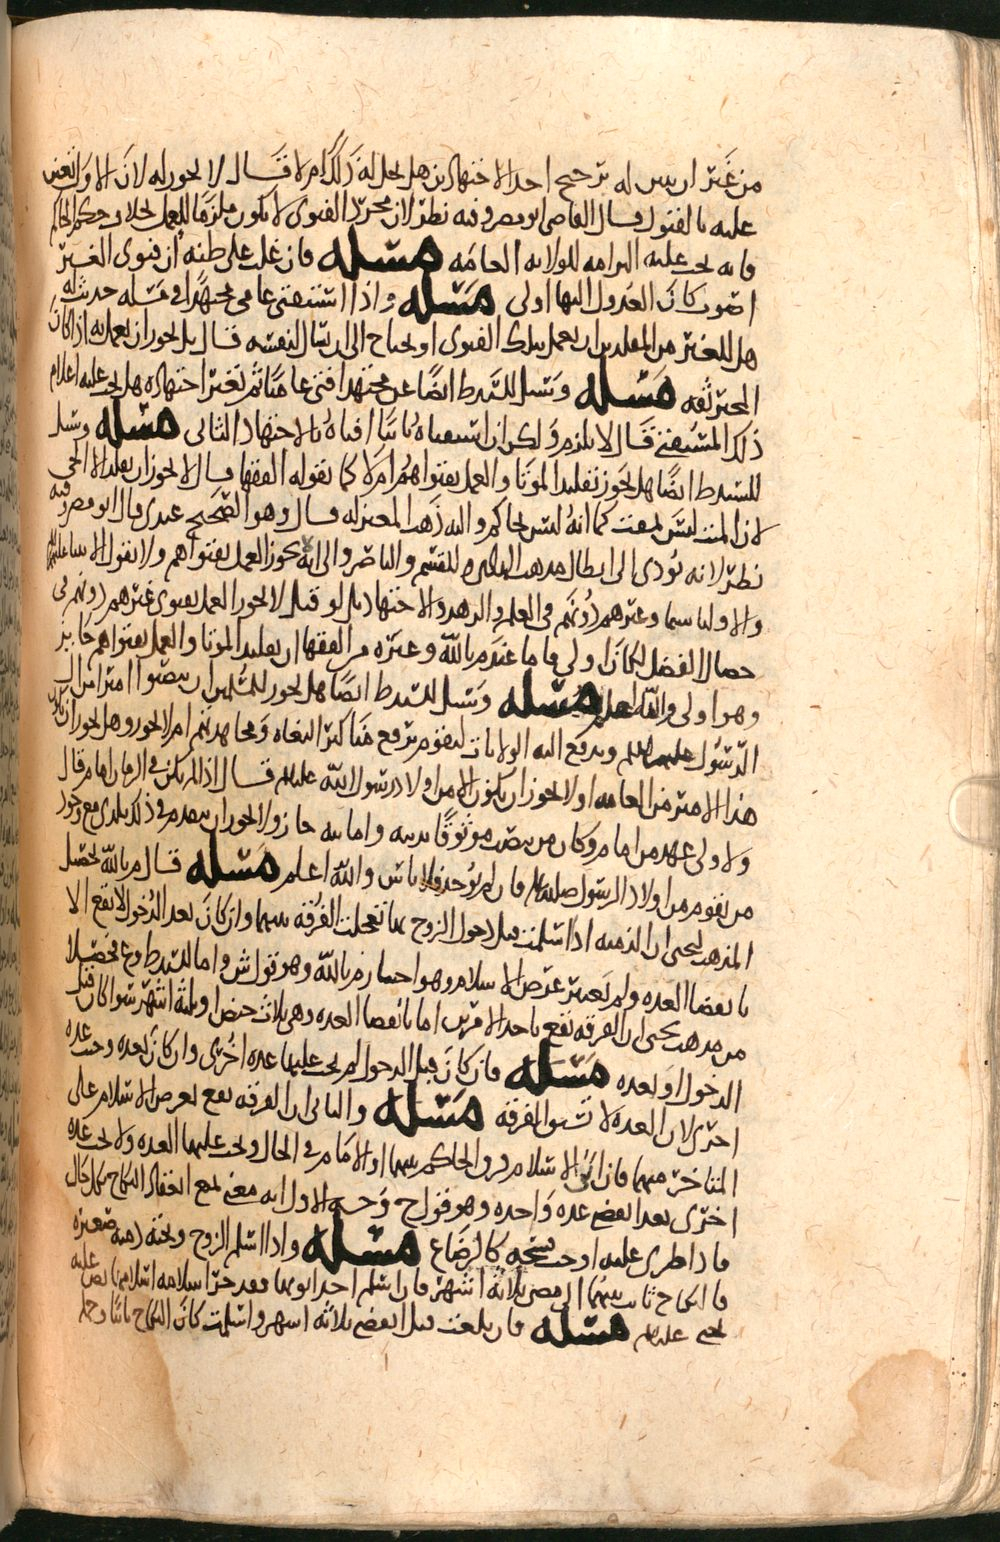 من غير ان يبين له ترجيح احد الاجتهادين هل يحل له ذلك ام لا قال لا يجوز له لان الاول تعين
عليه بالفتوى قال القاضي ابو مضر وفيه نظر لان مجرد الفتوى لا يكون ملزما للعمل بخلاف حكم الحاكم
فانه يجب عليه التزامه للولاية العامه مسئله فان غلب على ظنه ان فتوى الغير
اصوب كان العدول اليها اولى مسئله واذا استفتى عامي مجتهدا في مسئله حدثت له
هل للغير من المقلدين ان يعمل بتلك الفتوى او يحتاج الى ان يسال لنفسه قال بل يجوز ان يعمل به اذا كان
المخبر ثقه مسئله وسئل للسيد ط ايضا عن مجتهد افتى عاميا ثم تغير اجتهاده هل يجب عليه اعلام
ذلك المستفتي قال لا يلزم ولكن ان استفتاه ثانيا افتاه بالاجتهاد الثاني مسئله وسئل
للسيد ط ايضا هل يجوز تقليد الموتا والعمل بفتواهم ام لا كما يقوله الفقها قال لا يجوز ان يقلد الا الحي
لان الميت ليس بمفت كما انه ليس بحاكم واليه ذهب المعتزله قال وهو الصحيح عندي قال ابو مضر وفيه
نظر لانه يؤدي الى ابطال مذهب للقسم والناصر والى انه يجوز العمل بفتواهم ولا بقول الانبيا عليهم
والاوليا سيما وغيرهم دونهم في العلم والزهد والاجتهاد بل لو قيل لا يجوز العمل بفتوى غيرهم دونهم في
خصال الفضل لكان اولى فاما عند م بالله وغيره من الفقها ان تقليد الموتا والعمل بفتواهم جايز
وهو اولى والله اعلم مسئله وسئل للسيد ط ايضا هل يجوز للمسلمين ان ينصبوا اميرا من ال
الرسول عليهم السلم ويدفع اليه الولايات ليقوم بدفع مناكير البغاه ومجاهدتهم ام لا يجوز وهل يجوز ان يكون
هذا الامير من العامه او لا يجوز ان يكون الا من اولاد رسول الله عليلم قال اذا لم يكن في الزمان امام قال
ولا ولي عهد من امام وكان من ينصب موثوقا بدينه وامانته جاز ولا يجوز ان يتقدم في ذلك بلدي مع وجود
من يقوم من اولاد الرسول صلعلم فان لم يوجد فلا باس والله اعلم مسئله قال م بالله تحصيل
المذهب ليحيى ان الذميه اذا اسلمت قبل دخول الزوج بها تعجلت الفرقه بينهما وان كان بعد الدخول لا يقع الا
بانقضا العده ولم يعتبر عرض الاسلام وهو اختيار م بالله وهو قول ش واما للسيد ط وع فحصلا
من مذهب يحيى ان الفرقه تقع باحد الامرين اما بانقضا العده وهي ثلاث حيض او ثلثة اشهر سوا كان قبل
الدخول او بعده مسئله فان كان قبل الدخول لم يجب عليها عده اخرى وان كان بعده وجب عده
اخرى لان العده لا تسبق الفرقه مسئله والثاني ان الفرقه تقع بعرض الاسلام على
المتاخر منهما فان ابى الاسلام فرق الحاكم بينهما او الامام في الحال ويجب عليها العده ولا يجب عده
اخرى بعد انقضى عده واحده وهو قول ح وجه الاول انه معنى يمنع انعقاد النكاح بكل حال
فاذا طرى عليه اوجب فسخه كالرضاع مسئله واذا اسلم الزوج وتحته ذميه صغيره
فالنكاح ثابت بينهما الى مضي ثلاثة اشهر فان اسلم احد ابويها فقد جرا سلامه اسلامها نص عليه
يحيى عليلم مسئله فان بلغت قبل انقضى ثلاثه اشهر واسلمت كان النكاح ثابتا وحل